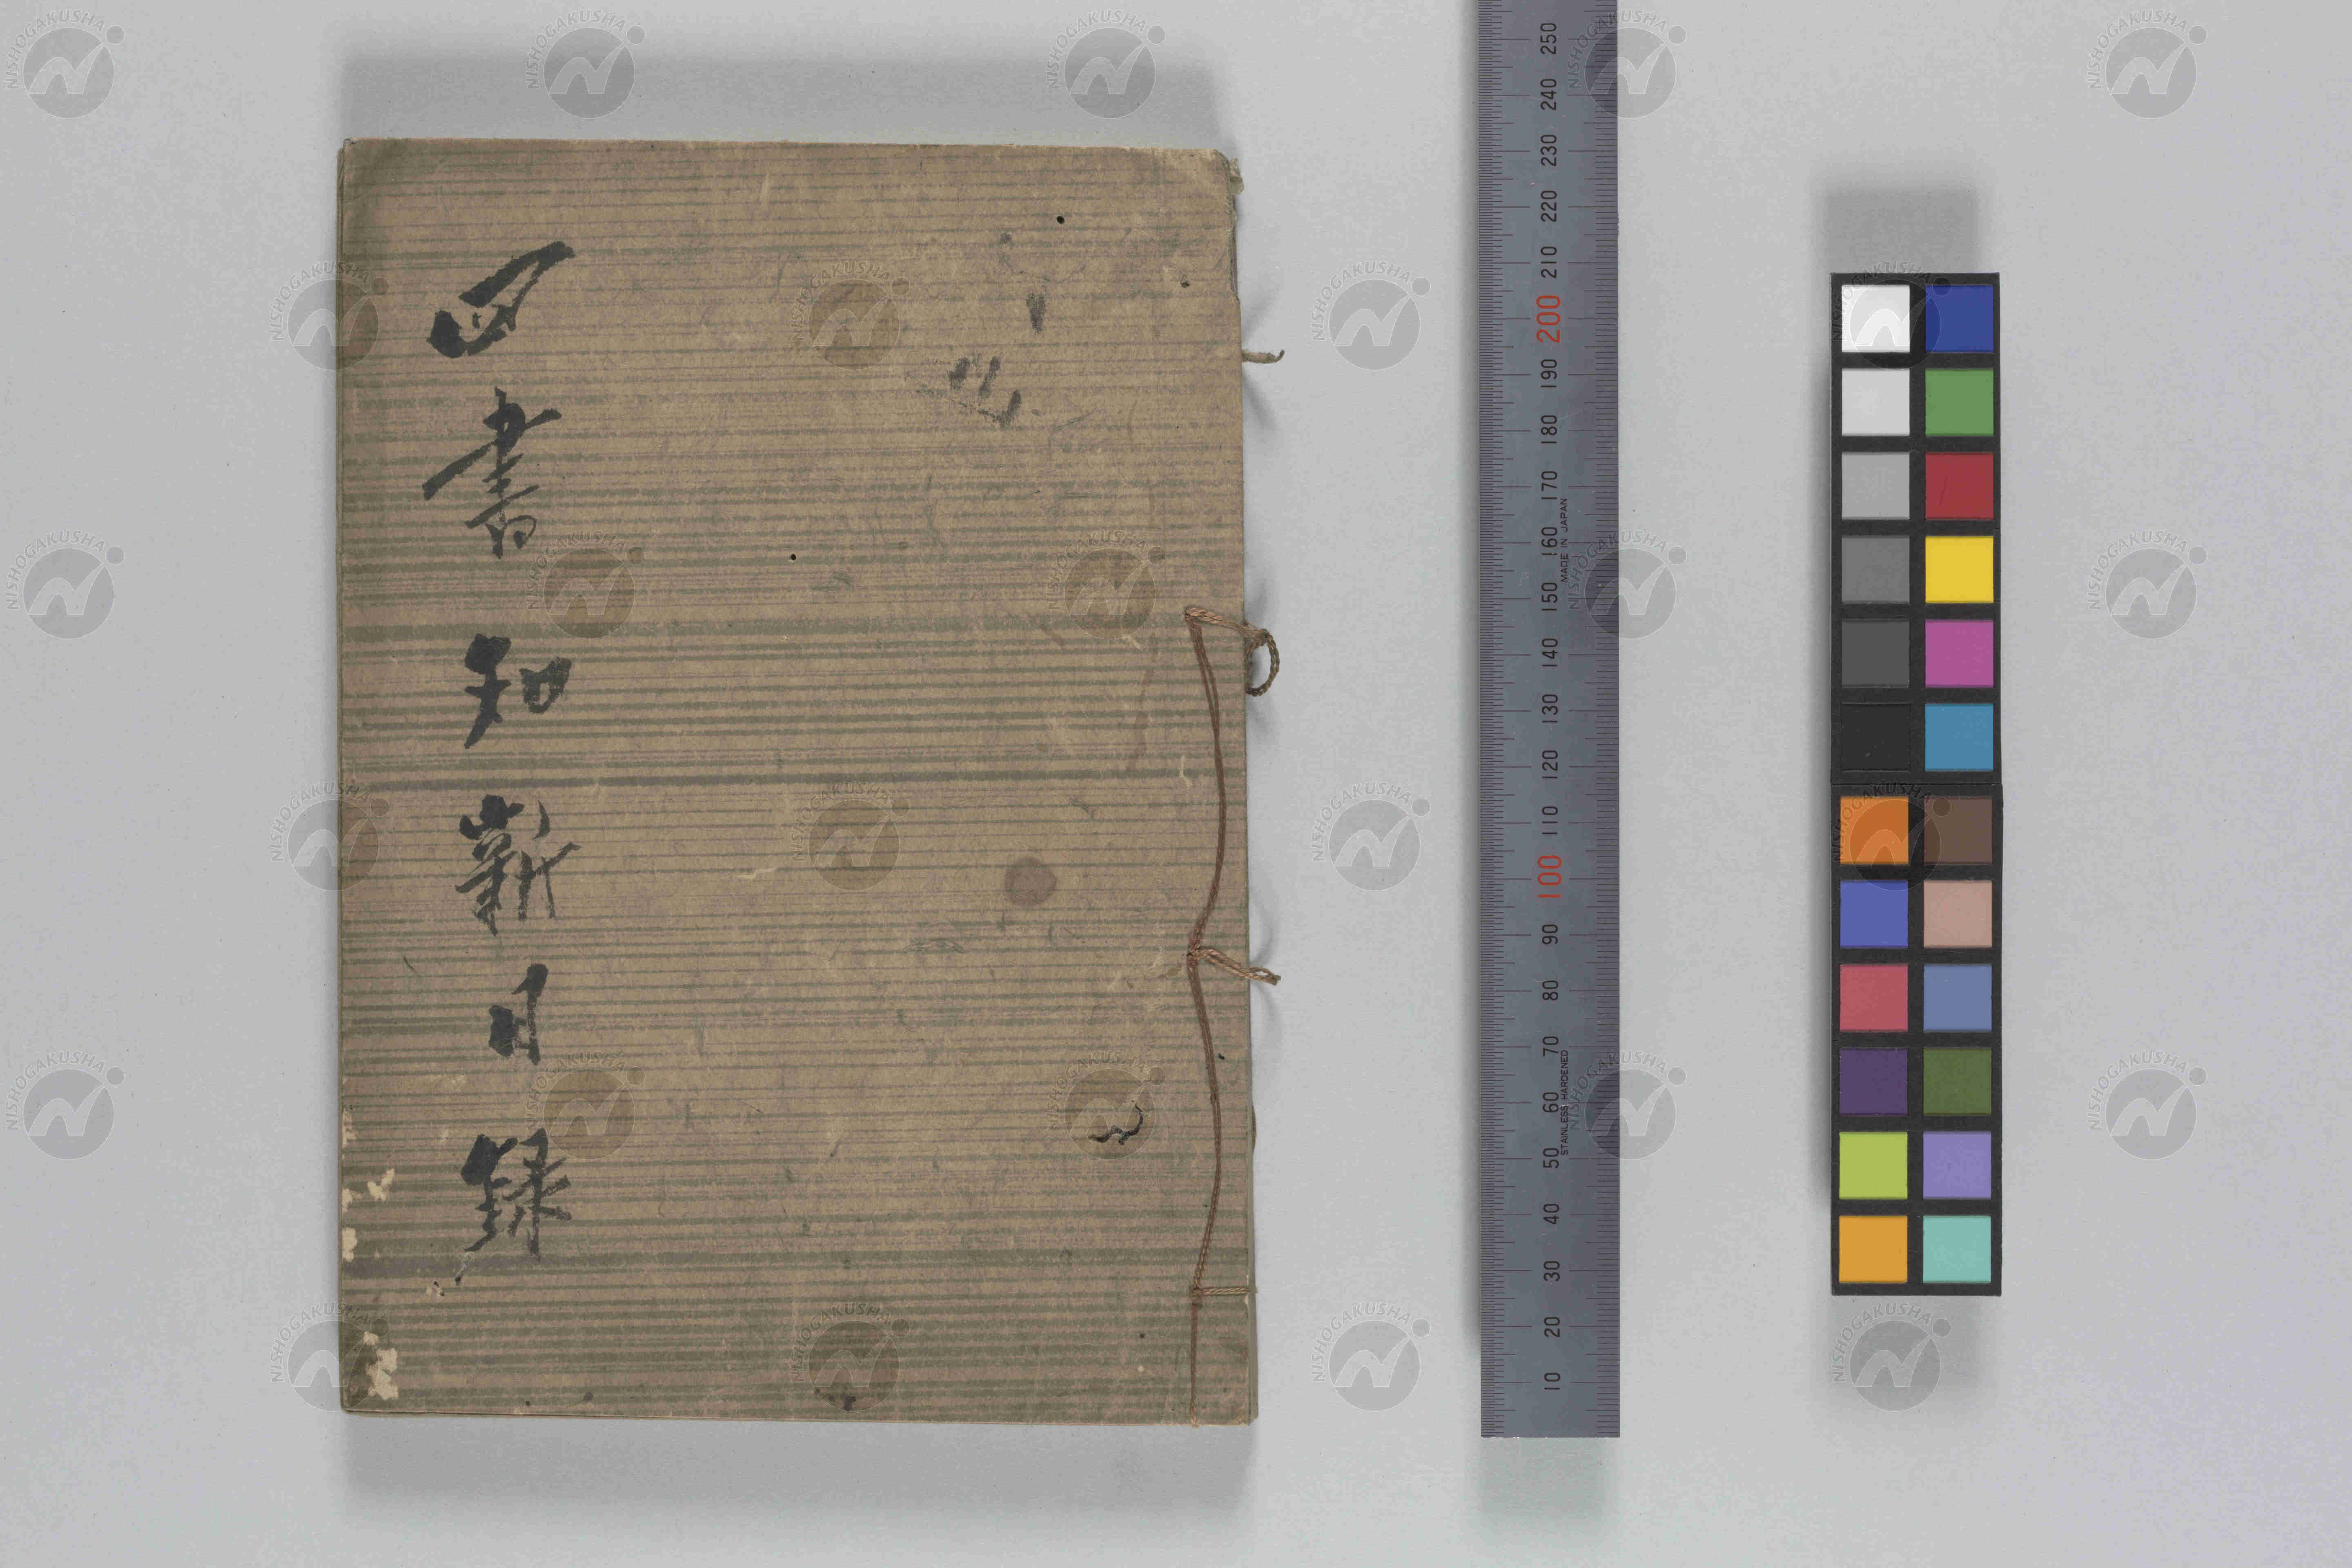 四書知新日録
250
240
230
220
210
200
190
180
170
160
150
140
130
120
110
100
90
80
70
60
50
40
30
20
10
MADE IN JAPAN
STAINLESS HARDENED
NISHOGAKUSHA